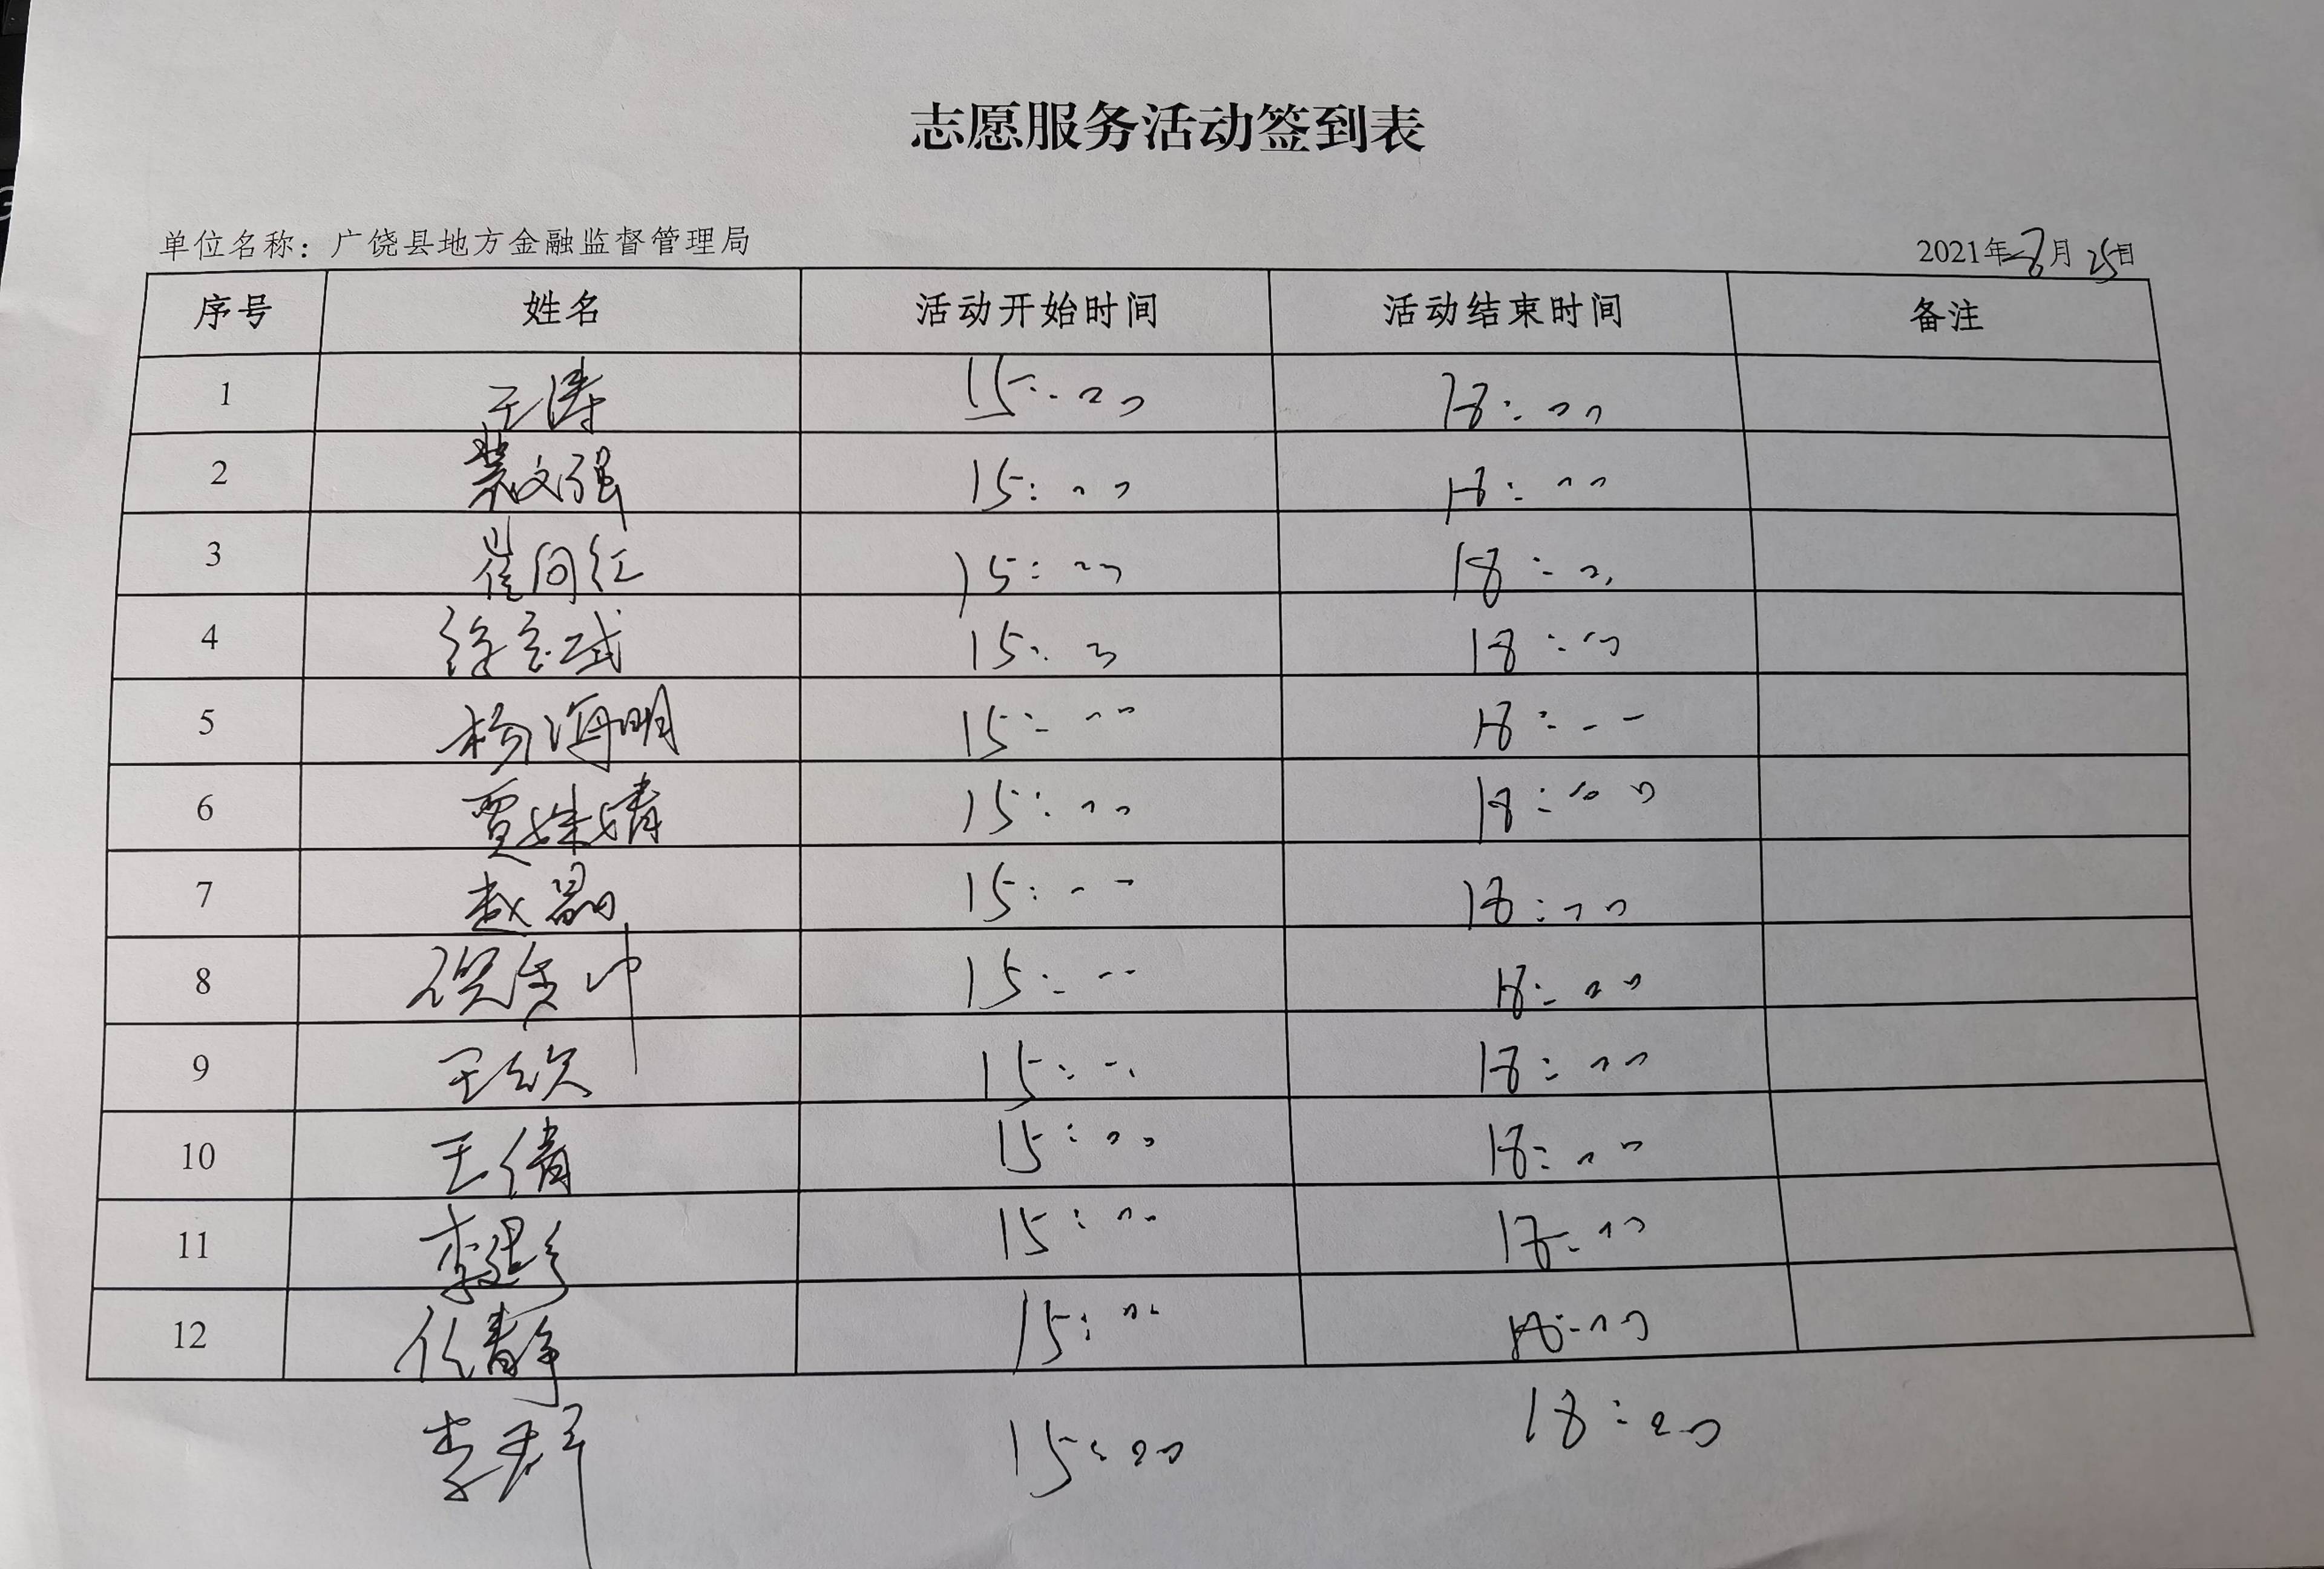 志愿服务活动签到表
单位名称：广饶县地方金融监督管理局 2021年8月25日
序号 姓名 活动开始时间 活动结束时间 备注
1 王涛 15:00 18:00
2 裴文强 15:00 18:00
3 崔向红 15:00 18:00
4 15:00 18:00
5 杨海明 15:00 18:00
6 贾姝婧 15:00 18:00
7 赵磊 15:00 18:00
8 15:00 18:00
9 王欣 15:00 18:00
10 王倩 15:00 18:00
11 15:00 18:00
12 任静 15:00 18:00
李群 15:00 18:00